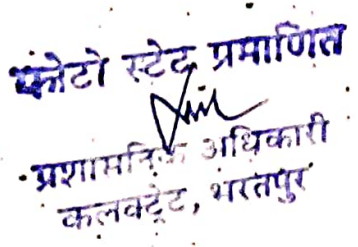 फोटो स्टेट प्रमाणित
प्रशासनिक अधिकारी
कलक्ट्रेट, भरतपुर